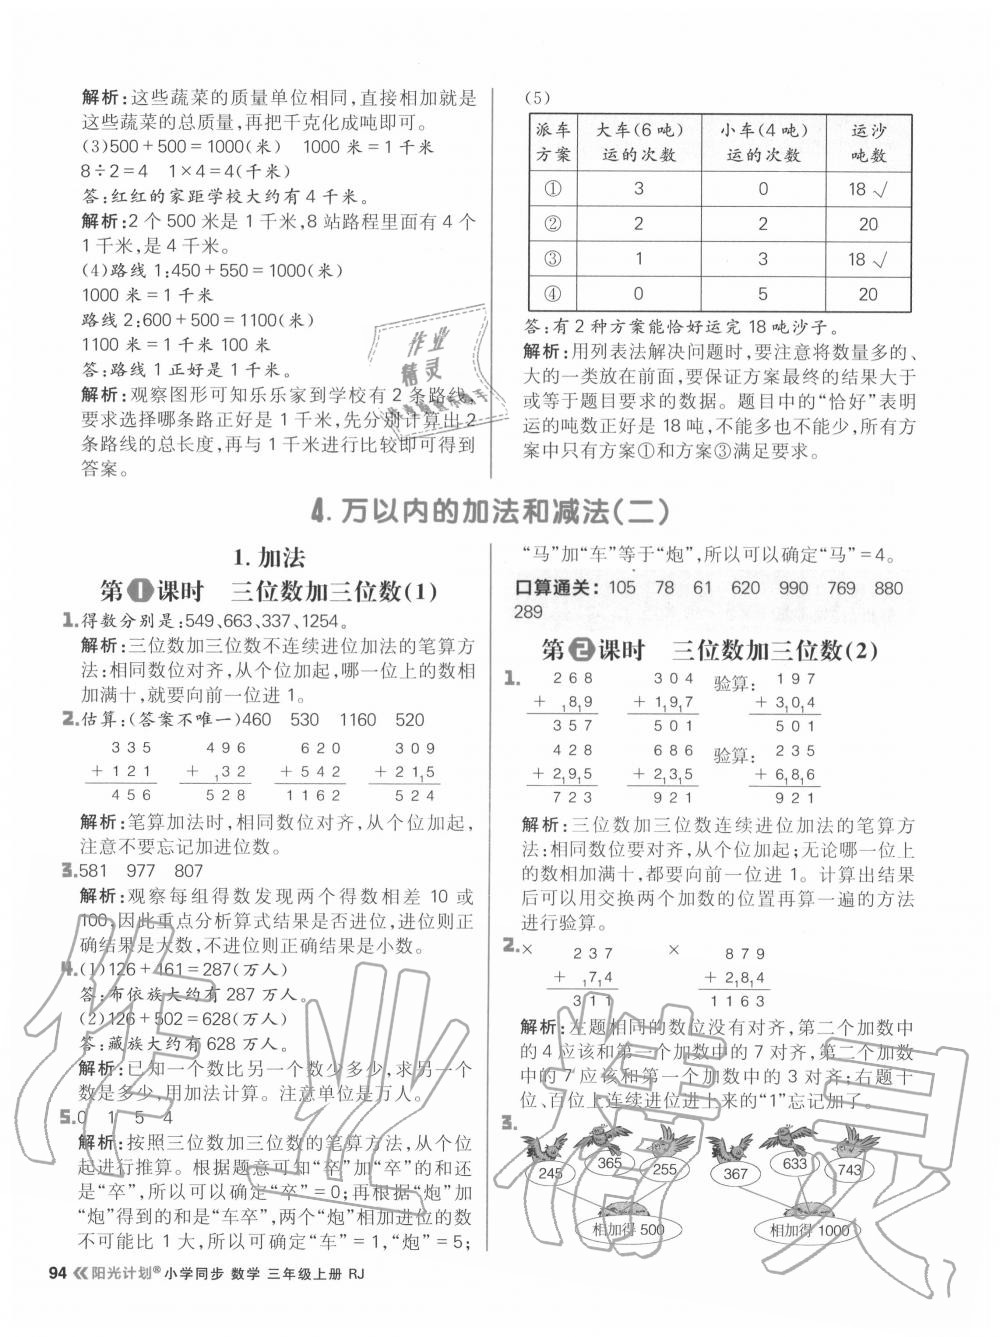 解析:这些蔬菜的质量单位相同,直接相加就是
这些蔬菜的总质量,再把千克化成吨即可。
(3)500+500=1000(米) 1000 米=1 千米
8÷2=4 1×4=4(千米)
答:红红的家距学校大约有 4 千米。
解析:2 个 500 米是 1 千米,8 站路程里面有 4 个
1 千米,是 4 千米。
(4)路线 1:450+550=1000(米)
1000 米=1 千米
路线 2:600+500=1100(米)
1100 米=1 千米 100 米
答:路线 1 正好是 1 千米。
解析:观察图形可知乐乐家到学校有 2 条路线,
要求选择哪条路正好是 1 千米,先分别计算出 2
条路线的总长度,再与 1 千米进行比较即可得到
答案。
(5)
派车方案 大车(6 吨)运的次数 小车(4 吨)运的次数 运沙吨数
① 3 0 18 √
② 2 2 20
③ 1 3 18 √
④ 0 5 20
答:有 2 种方案能恰好运完 18 吨沙子。
解析:用列表法解决问题时,要注意将数量多的、
大的一类放在前面,要保证方案最终的结果大于
或等于题目要求的数据。题目中的“恰好”表明
运的吨数正好是 18 吨,不能多也不能少,所有方
案中只有方案①和方案③满足要求。
4. 万以内的加法和减法(二)
1. 加法
第1课时 三位数加三位数(1)
1. 得数分别是:549、663、337、1254。
解析:三位数加三位数不连续进位加法的笔算方
法:相同数位对齐,从个位加起,哪一位上的数相
加满十,就要向前一位进 1。
2. 估算:(答案不唯一)460 530 1160 520
335 496 620 309
+121 +132 +542 +2115
456 528 1162 524
解析:笔算加法时,相同数位对齐,从个位加起,
注意不要忘记加进位数。
3. 581 977 807
解析:观察每组得数发现两个得数相差 10 或
100,因此重点分析算式结果是否进位,进位则正
确结果是大数,不进位则正确结果是小数。
4. (1)126+161=287(万人)
答:布依族大约有 287 万人。
(2)126+502=628(万人)
答:藏族大约有 628 万人。
解析:已知一个数比另一个数少多少,求另一个
数是多少,用加法计算。注意单位是万人。
5. 0 1 5 4
解析:按照三位数加三位数的笔算方法,从个位
起进行推算。根据题意可知“卒”加“卒”的和还
是“卒”,所以可以确定“卒”=0;再根据“炮”加
“炮”得到的和是“车卒”,两个“炮”相加进位的数
不可能比 1 大,所以可确定“车”=1,“炮”=5;
“马”加“车”等于“炮”,所以可以确定“马”=4。
口算通关: 105 78 61 620 990 769 880
289
第2课时 三位数加三位数(2)
1. 268 304 验算: 197
+1819 +11917 +31014
357 501 501
428 686 验算: 235
+21915 +21315 +61816
723 921 921
解析:三位数加三位数连续进位加法的笔算方
法:相同数位要对齐,从个位加起;无论哪一位上
的数相加满十,都要向前一位进 1。计算出结果
后可以用交换两个加数的位置再算一遍的方法
进行验算。
2. × 237 × 879
+1714 +21814
311 1163
解析:左题相同的数位没有对齐,第二个加数中
的 4 应该和第一个加数中的 7 对齐,第二个加数
中的 7 应该和第一个加数中的 3 对齐;右题十
位、百位上连续进位进上来的“1”忘记加了。
3.
245 365 255 367 633 743
相加得 500 相加得 1000
94 阳光计划® 小学同步 数学 三年级上册 RJ
作业精灵
作业
精灵